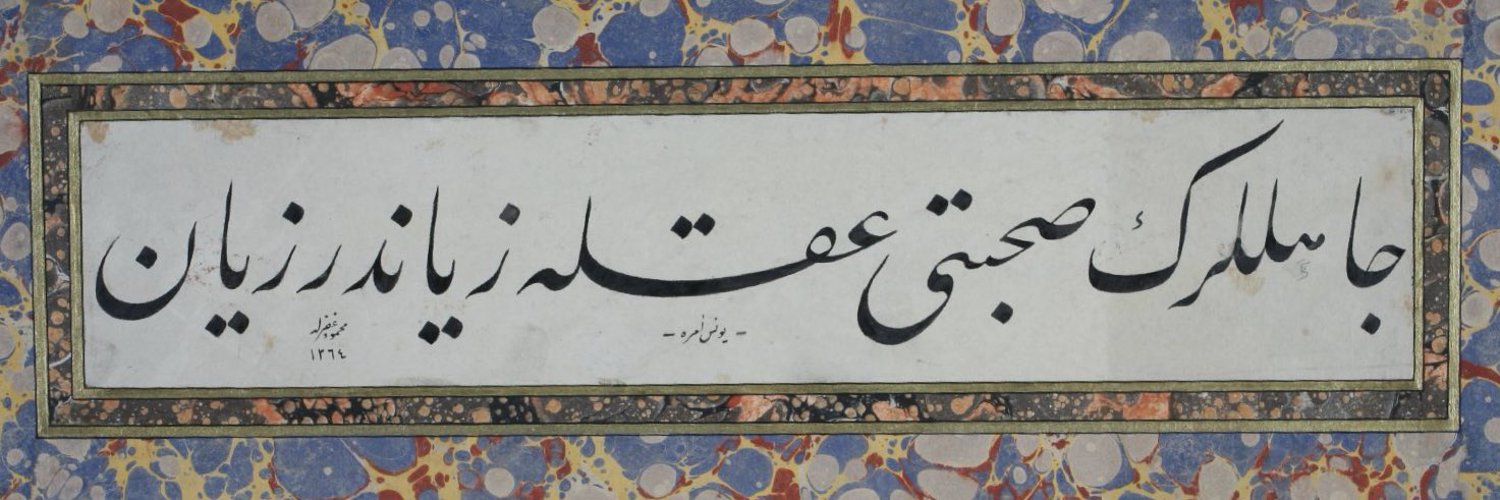 جاهللرڭ صحبتی عقله زیاندر زیان
- یونس امره -
محمود غفرله
١٣٦٤